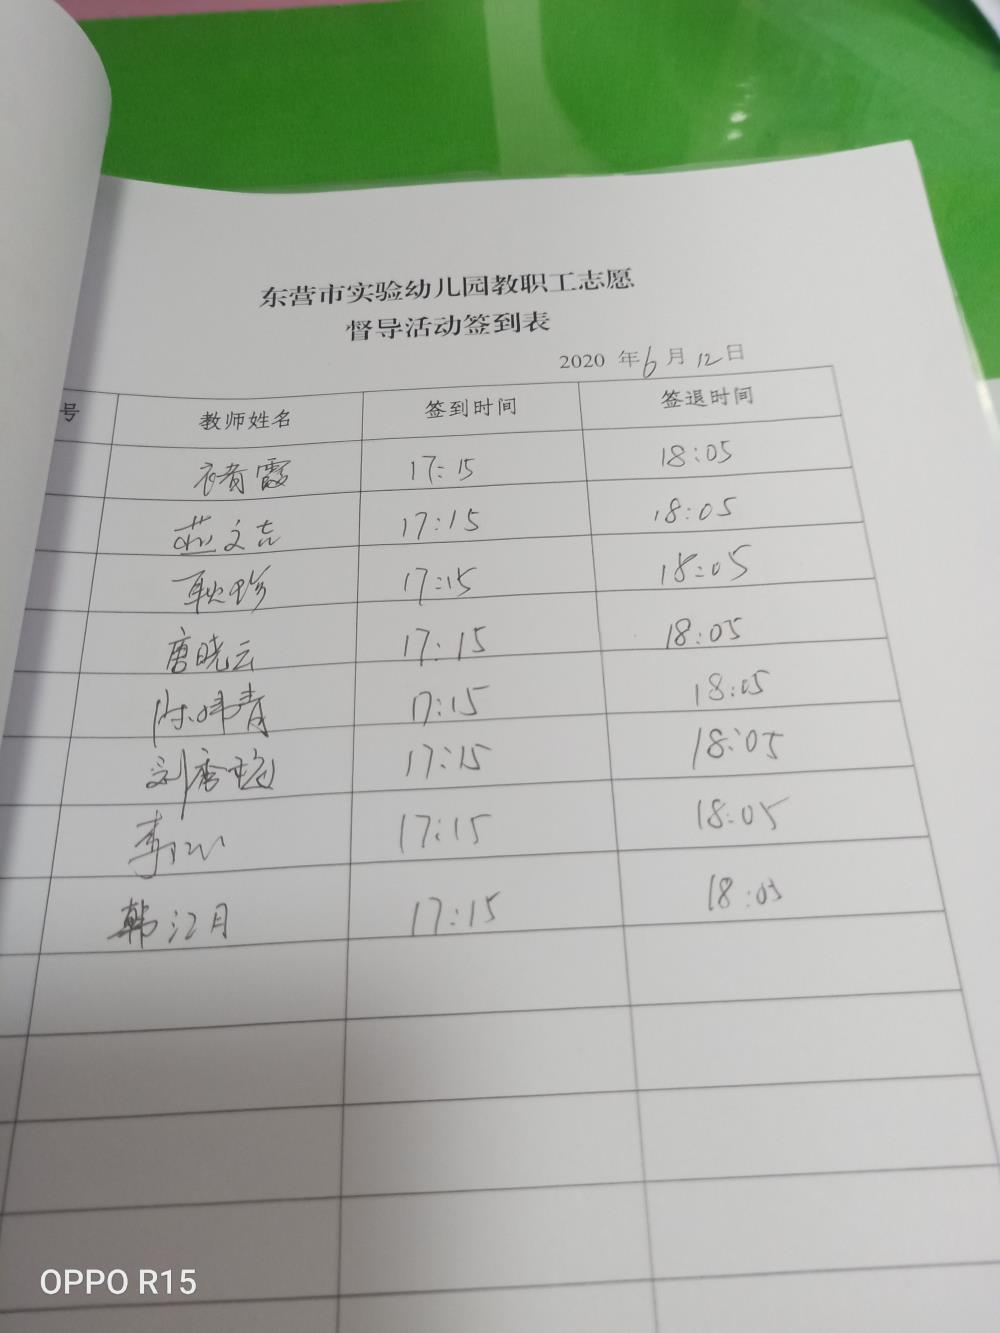 东营市实验幼儿园教职工志愿
督导活动签到表
2020 年 6 月 12 日
号 教师姓名 签到时间 签退时间
霞 17:15 18:05
17:15 18:05
耿珍 17:15 18:05
唐晓云 17:15 18:05
陈炜青 17:15 18:05
刘秀 17:15 18:05
李 17:15 18:05
韩江月 17:15 18:05
OPPO R15